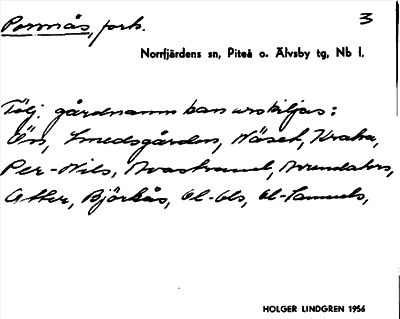 Porsnäs, forts. 3
Norrfjärdens sn, Piteå o. Älvsby tg, Nb l.
Följ. gårdnamn kan urskiljas:
Ön, Smedsgården, Näset, Kraka,
Per-Nils, Avastrand, Arrendators,
Atter, Björkås, Ol-Ols, Ol-Samuels,
HOLGER LINDGREN 1956